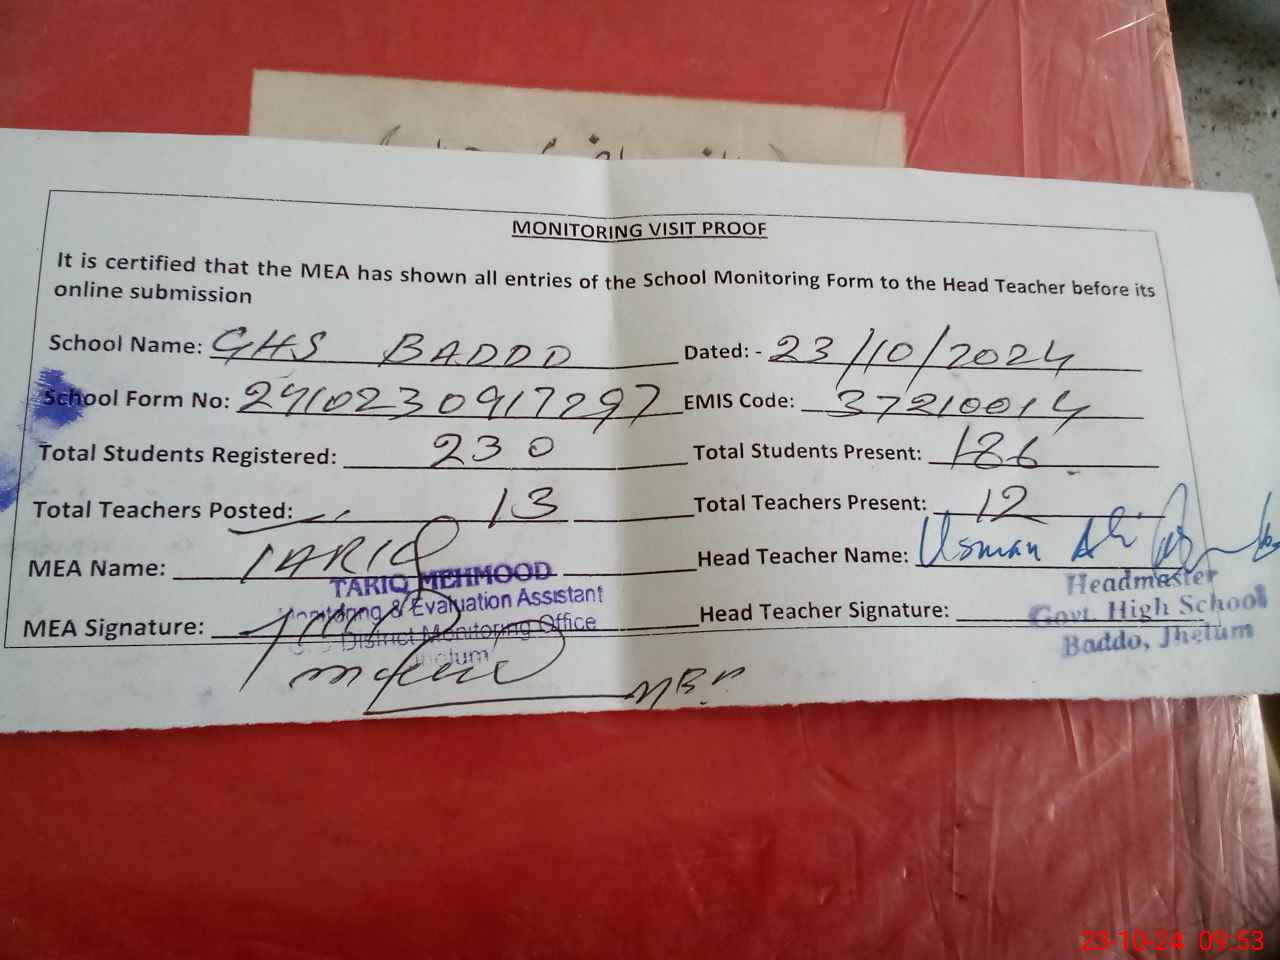 MONITORING VISIT PROOF
It is certified that the MEA has shown all entries of the School Monitoring Form to the Head Teacher before its
online submission
School Name: GHS BADDO Dated: - 23/10/2024
School Form No: 2410230917297 EMIS Code: 37210014
Total Students Registered: 230 Total Students Present: 186
Total Teachers Posted: 13 Total Teachers Present: 12
MEA Name: TARIQ Head Teacher Name: Usman Ali
TARIQ MEHMOOD
Monitoring & Evaluation Assistant
District Monitoring Office
Jhelum
MEA Signature: Head Teacher Signature:
Headmaster
Govt. High School
Baddo, Jhelum
23-10-24 09:53